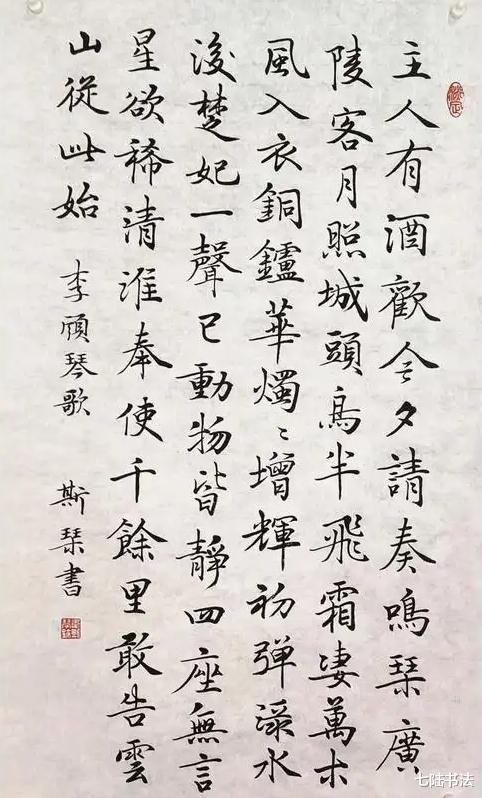 主人有酒歡今夕請奏鳴琹廣
陵客月照城頭烏半飛霜凄萬木
風入衣銅鑪華燭〻增輝初彈淥水
後楚妃一聲已動物皆靜四座無言
星欲稀清淮奉使千餘里敢告雲
山從此始 李頎琴歌 斯琹書
七陆书法